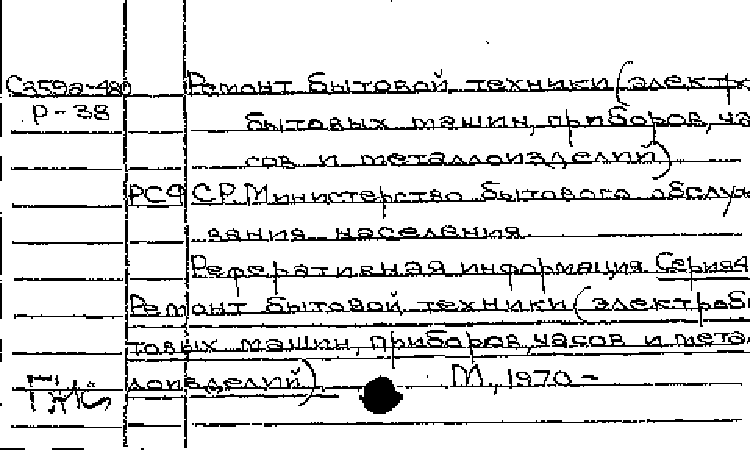 С359а-480 Ремонт бытовой техники (электро
Р-38 бытовых машин, приборов, ча
сов и металлоизделий)
РСФСР. Министерство бытового обслужи
вания населения.
Реферативная информация. Серия 4
Ремонт бытовой техники (электробы
товых машин, приборов, часов и метал
лоизделий). М., 1970-